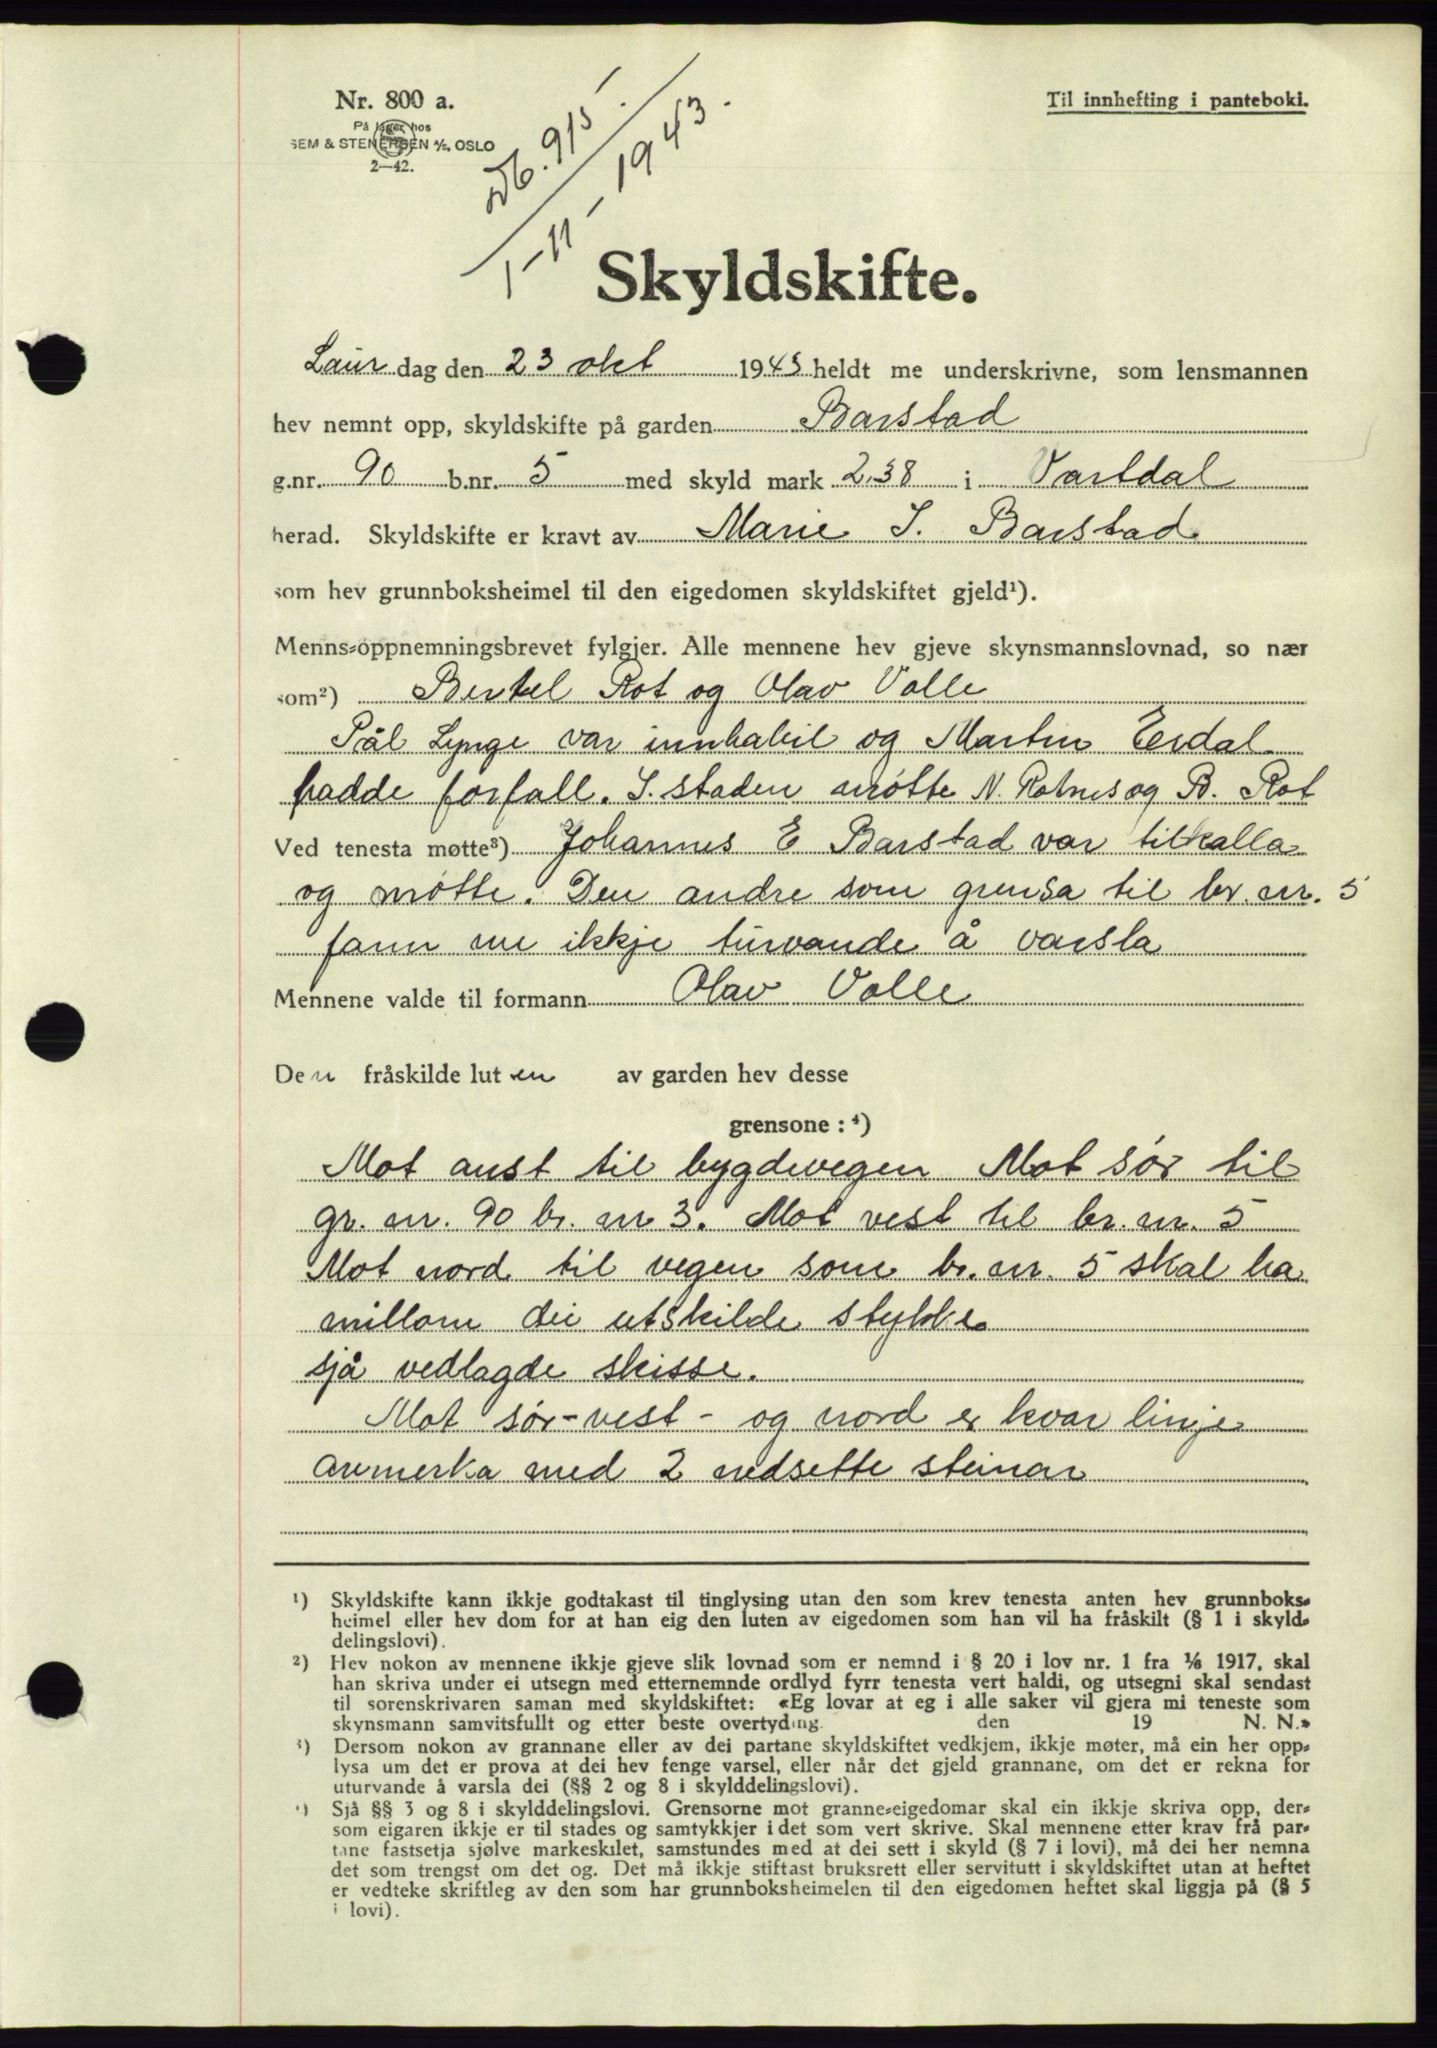 Nr. 800 a.
På lager hos
SEM & STENERSEN A/S, OSLO
2—42.
Til innhefting i panteboki.
Db. 915
1-11-1943.
Skyldskifte.
Laur dag den 23 okt 1943 heldt me underskrivne, som lensmannen
hev nemnt opp, skyldskifte på garden Barstad
g.nr. 90 b.nr. 5 med skyld mark 2,38 i Vartdal
herad. Skyldskifte er kravt av Marie I. Barstad
som hev grunnboksheimel til den eigedomen skyldskiftet gjeld¹).
Menns-oppnemningsbrevet fylgjer. Alle mennene hev gjeve skynsmannslovnad, so nær
som²) Bertel Rot og Olav Valle
Pål Lynge var innhabil og Martin Erdal
hadde forfall. I staden møtte N. Rotnes og B. Rot
Ved tenesta møtte³) Johannes E Barstad var tilkalla
og møtte. Den andre som grensa til br. nr. 5
fann me ikkje turvande å varsla
Mennene valde til formann Olav Valle
Den fråskilde luten av garden hev desse
grensone : ⁴)
Mot aust til bygdevegen Mot sør til
gr. nr. 90 br. nr 3. Mot vest til br. nr. 5
Mot nord til vegen som br. nr. 5 skal ha
millom dei utskilde stykke.
sjå vedlagde skisse.
Mot sør-vest- og nord er kvar linje
avmerka med 2 nedsette steinar
¹) Skyldskifte kann ikkje godtakast til tinglysing utan den som krev tenesta anten hev grunnboks-
heimel eller hev dom for at han eig den luten av eigedomen som han vil ha fråskilt (§ 1 i skyld-
delingslovi).
²) Hev nokon av mennene ikkje gjeve slik lovnad som er nemnd i § 20 i lov nr. 1 fra 1/6 1917, skal
han skriva under ei utsegn med etternemnde ordlyd fyrr tenesta vert haldi, og utsegni skal sendast
til sorenskrivaren saman med skyldskiftet: «Eg lovar at eg i alle saker vil gjera mi teneste som
skynsmann samvitsfullt og etter beste overtyding. den 19 N. N.»
³) Dersom nokon av grannane eller av dei partane skyldskiftet vedkjem, ikkje møter, må ein her opp-
lysa um det er prova at dei hev fenge varsel, eller når det gjeld grannane, om det er rekna for
uturvande å varsla dei (§§ 2 og 8 i skylddelingslovi).
⁴) Sjå §§ 3 og 8 i skylddelingslovi. Grensorne mot granne-eigedomar skal ein ikkje skriva opp, der-
som eigaren ikkje er til stades og samtykkjer i det som vert skrive. Skal mennene etter krav frå par-
tane fastsetja sjølve markeskilet, samstundes med at dei sett i skyld (§ 7 i lovi), må dei her nemna
det som trengst om det og. Det må ikkje stiftast bruksrett eller servitutt i skyldskiftet utan at heftet
er vedteke skriftleg av den som har grunnboksheimelen til den eigedomen heftet skal liggja på (§ 5
i lovi).